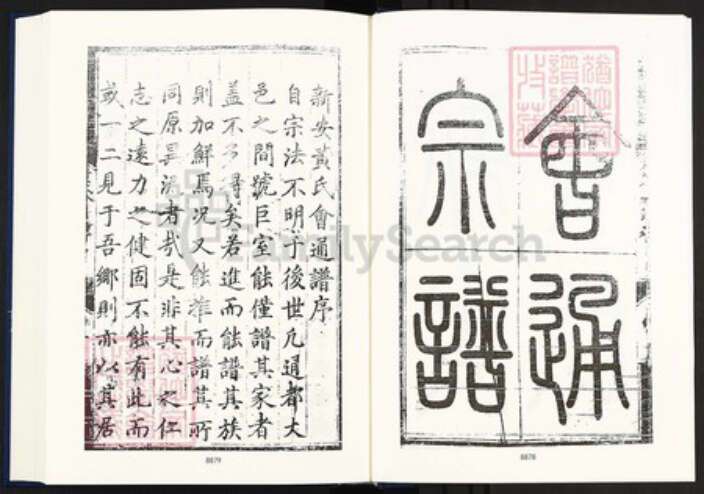 會通
宗譜
8878
新安黃氏會通譜序
自宗法不明于後世凡通都大
邑之間號巨室能僅譜其家者
蓋不多得矣若進而能譜其族
則加鮮焉况又能推而譜其所
同原異派者哉是非其心之仁
志之遠力之健固不能有此而
或一二見于吾鄉則亦以其居
8879
FamilySearch